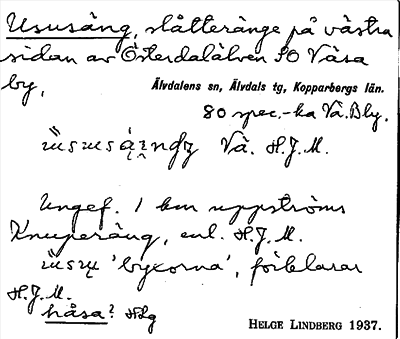 Ususäng, slåtteränge på västra
sidan av Österdalälven SO Väsa
by, Älvdalens sn, Älvdals tg, Kopparbergs län.
80 spec.-ka Vä. Bby.
Vä. H.J.M.
Ungef. 1 km uppströms
Knuperäng, enl. H.J.M.
'byxorna', förklarar
H.J.M.
håsa? HLg
HELGE LINDBERG 1937.